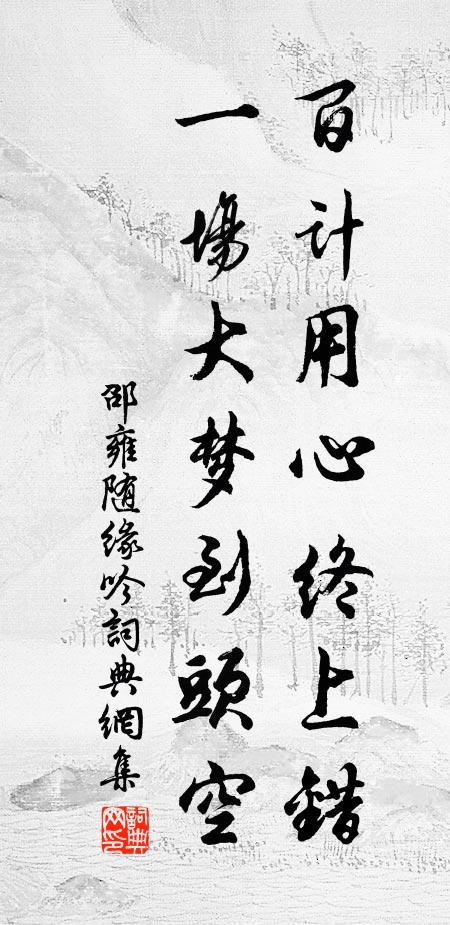 百计用心终上錯
一場大梦到頭空
邵雍随缘吟詞典網集
詞典网印